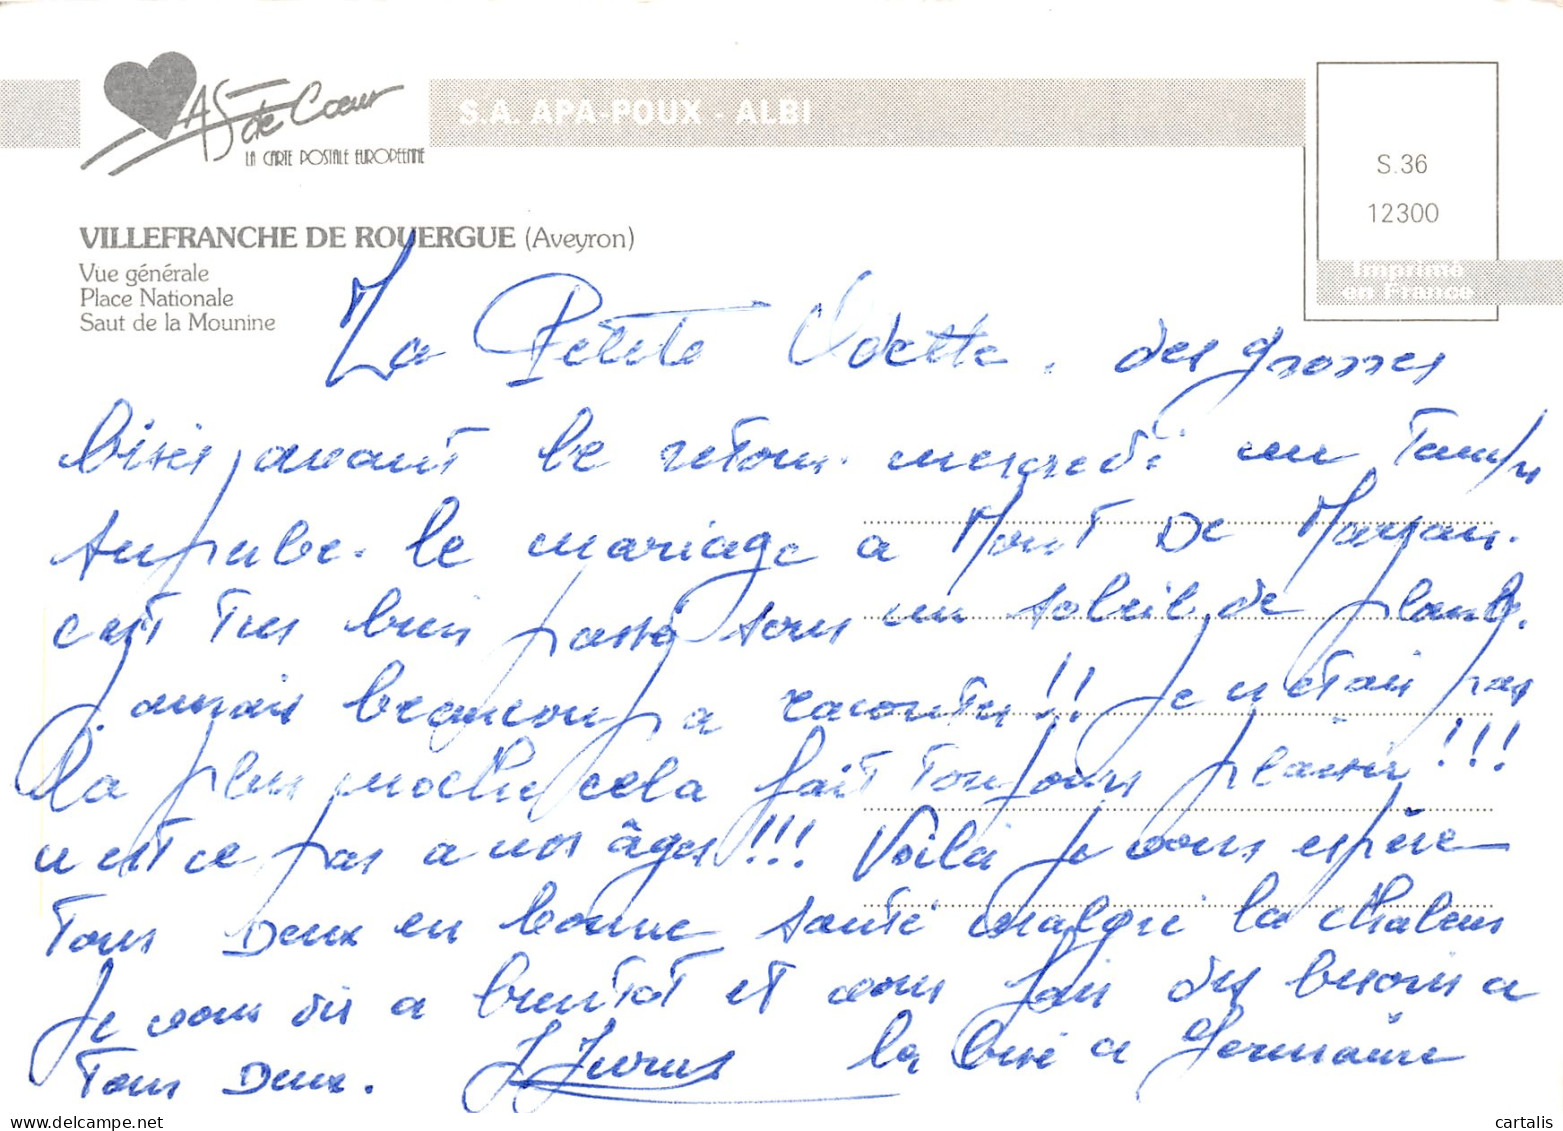 AS de Cœur
LA CARTE POSTALE EUROPEENNE
S.A. APA-POUX - ALBI
S.36
12300
Imprimé
en France
VILLEFRANCHE DE ROUERGUE (Aveyron)
Vue générale
Place Nationale
Saut de la Mounine
La Petite Odette. des grosses
bises avant le retour mercredi un Temps
superbe. le mariage a Mont De Marsan.
c'est Tres bien passé sous un soleil de plomb.
j'aurais beaucoup a raconter!! Je n'étais pas
la plus moche cela fait Toujours plaisir!!!
n'est ce pas a nos âges!!! Voilà je vous espère
Tous Deux en bonne santé malgré la chaleur
Je vous dis a bientot et vous fais des besoins a
Tous Deux. la bise a Germaine